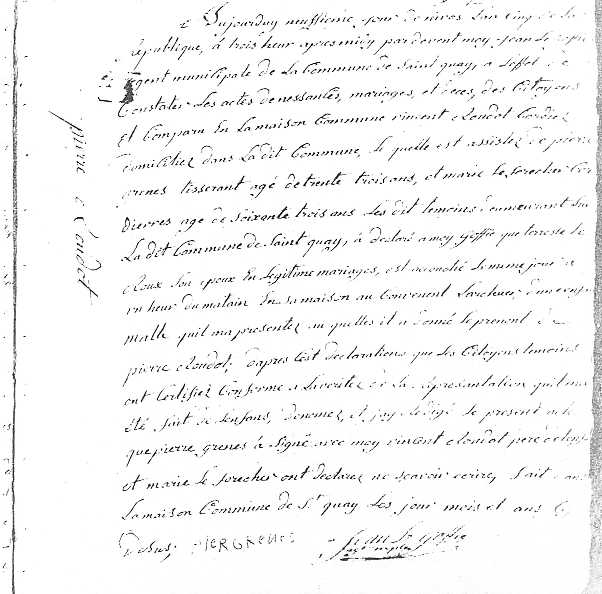 Dujourduy neuffiême jour de nivos L'an cinq de La
république, à trois heur apres midy par devent moy, Jean Le
agent municipale de La Commune de Saint quay, a Leffet de
Constater Les actes de nessantes, mariages, et deces, des Citoyens
Et Comparu En La maison Commune vincent cloudot Cordier
domicilliez dans La dit Commune, le quelle est assistez de pierre
grenes tisserant agé de trente trois ans, et marie Le forecher
agé de Soixante trois ans Les dit temoins demeurant Sur
La dit Commune de Saint quay, à declaré a moy que
cloux Son epoux En Legitime mariages, est accouché Le meme jour a
un heur du matain En Sa maison au Convenent d'une enfant
malle quil ma presentez au quelles il a donné le prenont de
pierre cloudot, Dapres Cest declarations que Les Citoyens temoins
ont Certifiez Conforme a La veritez et La représantation quil ma
été fait de Lenfans, denomez, et jay redigé Le present acte
que pierre grenes à Signé avec moy vincent cloudot pere
et marie Le forecher ont declarez ne Scavoir ecrire, fait dans
La maison Commune de St quay Les jour mois et ans
Desus; PIER GRENES
pierre cloudot